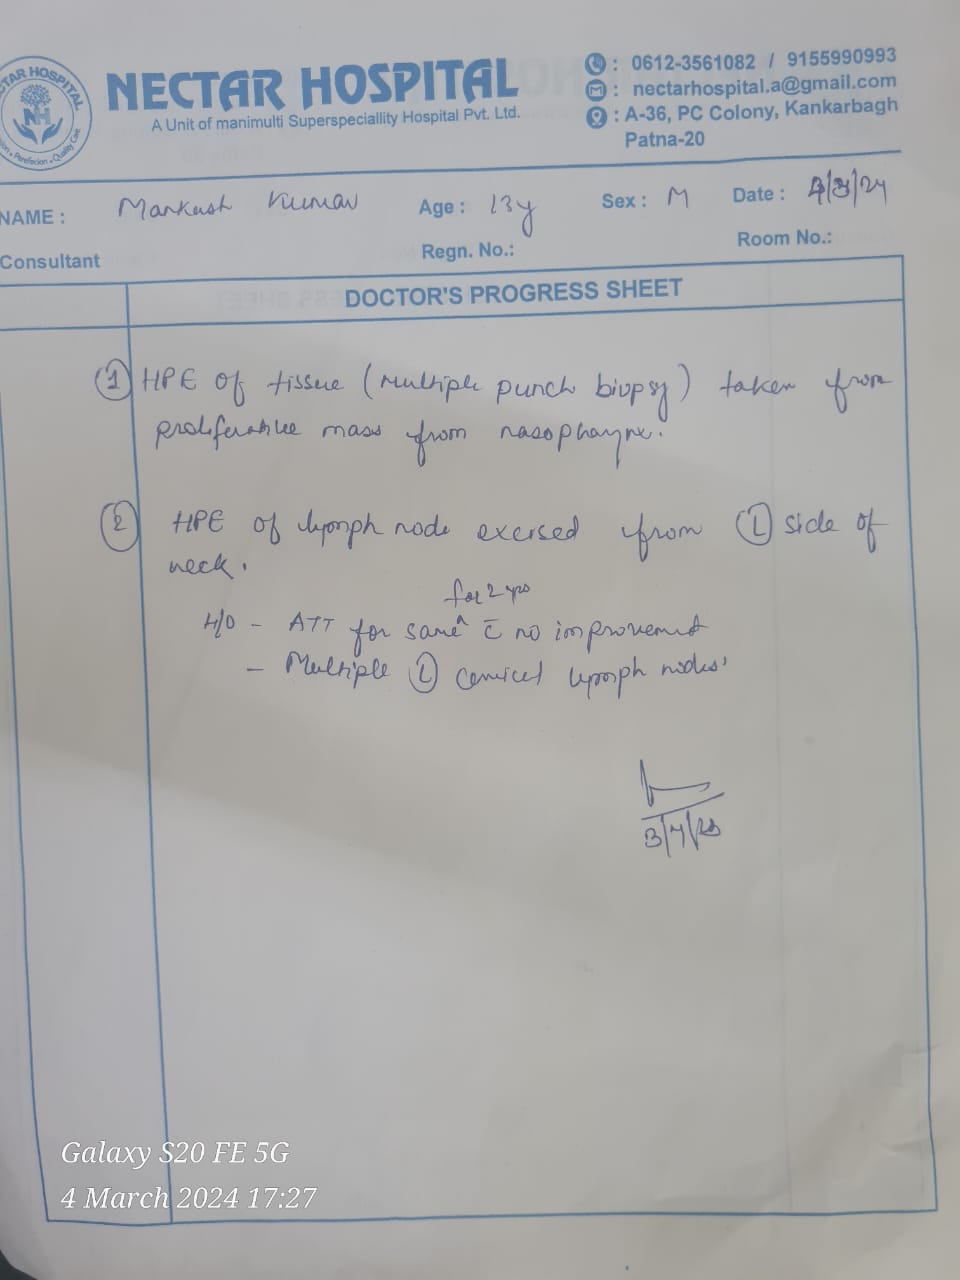 NECTAR HOSPITAL
A Unit of manimulti Superspeciallity Hospital Pvt. Ltd.
: 0612-3561082 / 9155990993
: nectarhospital.a@gmail.com
: A-36, PC Colony, Kankarbagh
Patna-20
NAME : Mankush Kumar Age : 13y Sex : M Date : 4/3/24
Consultant Regn. No.: Room No.:
DOCTOR'S PROGRESS SHEET
① HPE of tissue (multiple punch biopsy) taken from
proliferative mass from nasopharynx.
② HPE of lymph node excised from Ⓛ side of
neck.
for 2 yrs
H/O - ATT for same ^ c̄ no improvement
- Multiple Ⓛ cervical lymph nodes
Galaxy S20 FE 5G
4 March 2024 17:27